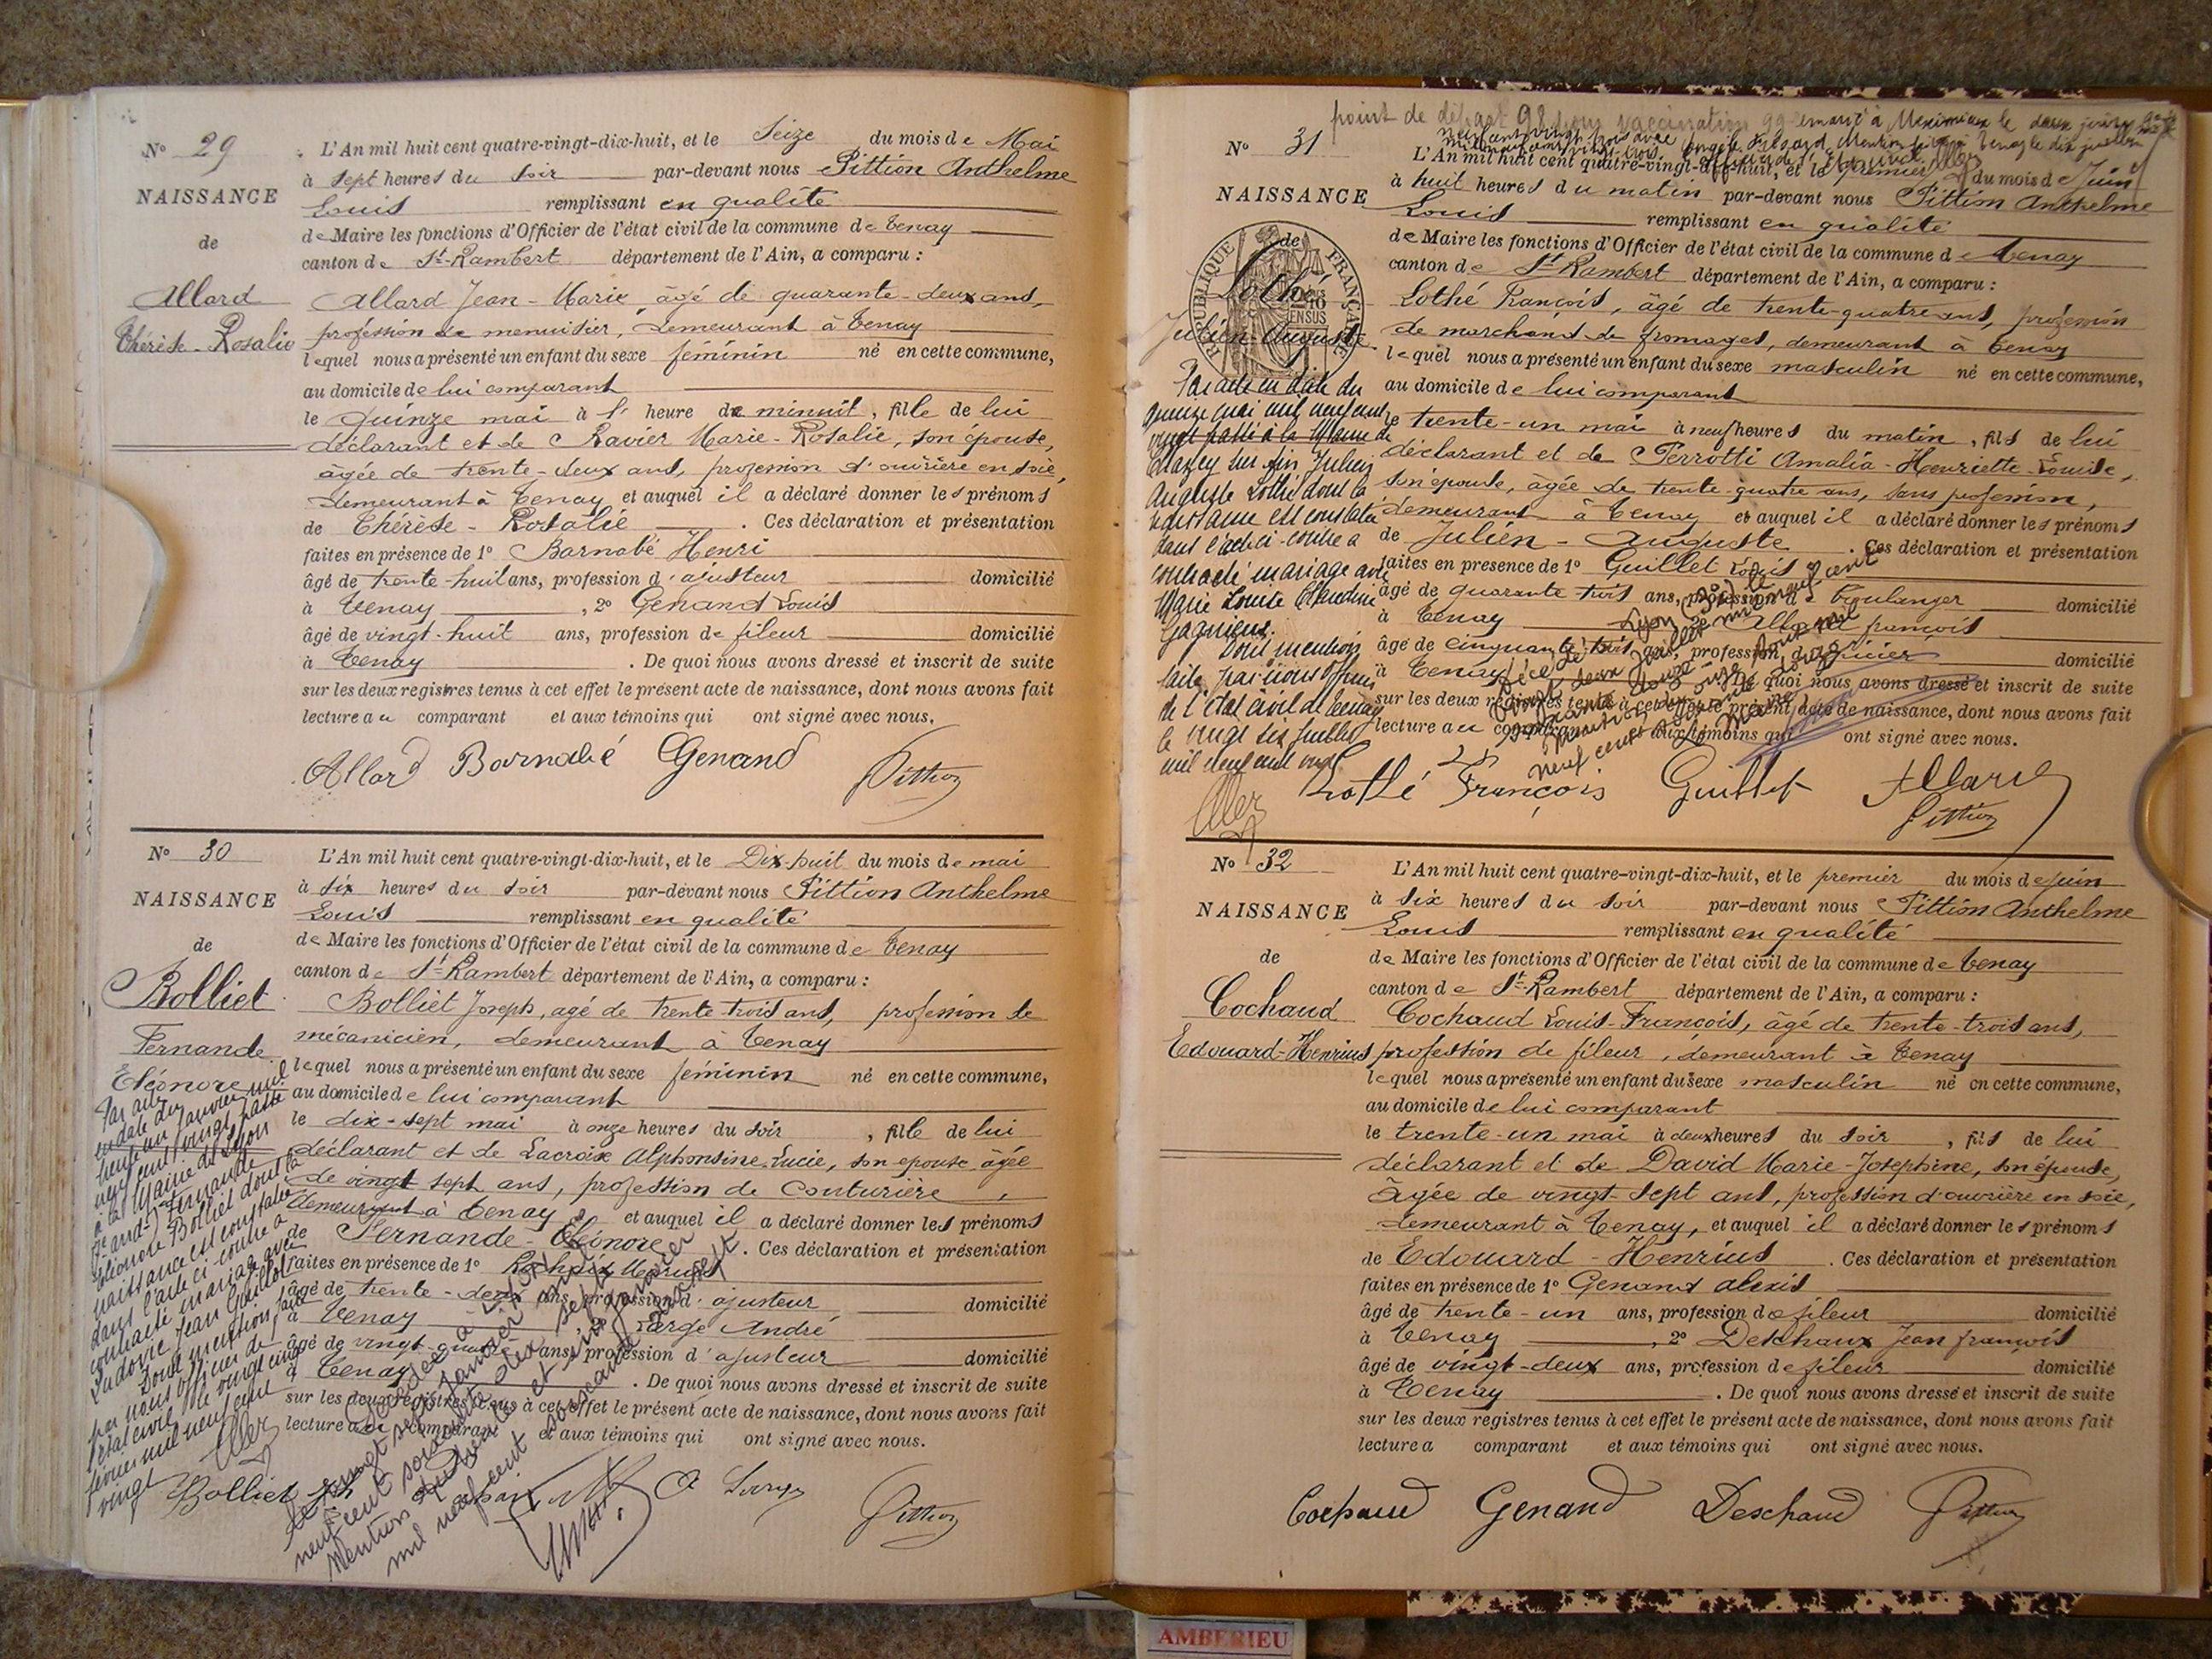 N° 29
NAISSANCE
de
Allard
Thérèse-Rosalie
L'An mil huit cent quatre-vingt-dix-huit, et le Seize du mois de Mai
à sept heures du soir par-devant nous Pittion Anthelme
Louis remplissant en qualité
de Maire les fonctions d'Officier de l'état civil de la commune de Tenay
canton de St-Rambert département de l'Ain, a comparu :
Allard Jean-Marie, âgé de quarante-deux ans,
profession de menuisier, demeurant à Tenay
lequel nous a présenté un enfant du sexe féminin né en cette commune,
au domicile de lui comparant
le quinze mai à l' heure de minuit, fille de lui
déclarant et de Ravier Marie-Rosalie, son épouse,
âgée de trente-deux ans, profession d'ouvrière en soie,
demeurant à Tenay et auquel il a déclaré donner les prénoms
de Thérèse-Rosalie . Ces déclaration et présentation
faites en présence de 1° Barnabé Henri
âgé de trente-huit ans, profession d'ajusteur domicilié
à Tenay , 2° Genand Louis
âgé de vingt-huit ans, profession de fileur domicilié
à Tenay . De quoi nous avons dressé et inscrit de suite
sur les deux registres tenus à cet effet le présent acte de naissance, dont nous avons fait
lecture au comparant et aux témoins qui ont signé avec nous.
Allard Barnabé Genand Pittion
N° 30
NAISSANCE
de
Bolliet
Fernande
Eléonore
Par acte
en date du
trente un janvier mil
neuf cent vingt passé
à la Mairie de Lyon
Fernande
Eléonore Bolliet dont la
naissance est constatée
dans l'acte ci contre a
contracté mariage avec
Jean Guillot
Dont mention faite
par nous officier de
l'état civil le vingt cinq
février mil neuf cent
vingt
L'An mil huit cent quatre-vingt-dix-huit, et le Dix-huit du mois de mai
à six heures du soir par-devant nous Pittion Anthelme
Louis remplissant en qualité
de Maire les fonctions d'Officier de l'état civil de la commune de Tenay
canton de St-Rambert département de l'Ain, a comparu :
Bolliet Joseph, agé de trente-trois ans, profession de
mécanicien, demeurant à Tenay
lequel nous a présenté un enfant du sexe féminin né en cette commune,
au domicile de lui comparant
le dix-sept mai à onze heures du soir , fille de lui
déclarant et de Lacroix Alphonsine-Lucie, son épouse, âgée
de vingt sept ans, profession de Couturière,
demeurant à Tenay et auquel il a déclaré donner les prénoms
de Fernande-Eléonore . Ces déclaration et présentation
faites en présence de 1°
âgé de trente-deux ans, profession d'ajusteur domicilié
à Tenay , 2° Large André
âgé de vingt-quatre ans, profession d'ajusteur domicilié
à Tenay . De quoi nous avons dressé et inscrit de suite
sur les deux registres tenus à cet effet le présent acte de naissance, dont nous avons fait
lecture au comparant et aux témoins qui ont signé avec nous.
Décédée à Lyon
le vingt sept janvier mil
neuf cent soixante deux
Mention
mil neuf cent soixante deux
Bolliet Pittion
point de départ 98 pour vaccination
Marié à Meximieux le deux juin
mil neuf cent vingt trois
N° 31
NAISSANCE
de
Lothé
Julien-Auguste
RÉPUBLIQUE FRANÇAISE
Par acte en date du
quinze mai mil neuf cent
vingt passé à la Mairie de
Chazey sur Ain Julien
Auguste Lothé dont la
naissance est constatée
dans l'acte ci-contre a
contracté mariage avec
Marie Louise Claudine
Gagnieux.
Dont mention
faite par nous officier
de l'état civil de Tenay
le vingt six juillet
mil neuf cent vingt
L'An mil huit cent quatre-vingt-dix-huit, et le premier du mois de Juin
à huit heures du matin par-devant nous Pittion Anthelme
Louis remplissant en qualité
de Maire les fonctions d'Officier de l'état civil de la commune de Tenay
canton de St-Rambert département de l'Ain, a comparu :
Lothé François, âgé de trente-quatre ans, profession
de marchand de fromages, demeurant à Tenay
lequel nous a présenté un enfant du sexe masculin né en cette commune,
au domicile de lui comparant
le trente-un mai à neuf heures du matin, fils de lui
déclarant et de Perrotti Amalia-Henriette-Louise,
son épouse, âgée de trente-quatre ans, sans profession,
demeurant à Tenay et auquel il a déclaré donner les prénoms
de Julien-Auguste . Ces déclaration et présentation
faites en présence de 1° Guillet Louis
âgé de quarante-trois ans, profession de boulanger domicilié
à Tenay , 2° Allard françois
âgé de cinquante-trois ans, profession domicilié
à Tenay . De quoi nous avons dressé et inscrit de suite
sur les deux registres tenus à cet effet le présent acte de naissance, dont nous avons fait
lecture au comparant et aux témoins qui ont signé avec nous.
Lothé François Guillet Allard
Pittion
N° 32
NAISSANCE
de
Cochaud
Edouard-Henrius
L'An mil huit cent quatre-vingt-dix-huit, et le premier du mois de juin
à six heures du soir par-devant nous Pittion Anthelme
Louis remplissant en qualité
de Maire les fonctions d'Officier de l'état civil de la commune de Tenay
canton de St-Rambert département de l'Ain, a comparu :
Cochaud Louis-François, âgé de trente-trois ans,
profession de fileur, demeurant à Tenay
lequel nous a présenté un enfant du sexe masculin né en cette commune,
au domicile de lui comparant
le trente-un mai à deux heures du soir , fils de lui
déclarant et de David Marie-Josephine, son épouse,
âgée de vingt-sept ans, profession d'ouvrière en soie,
demeurant à Tenay, et auquel il a déclaré donner les prénoms
de Edouard-Henrius . Ces déclaration et présentation
faites en présence de 1° Genand Alexis
âgé de trente-un ans, profession de fileur domicilié
à Tenay , 2° Deschaux Jean françois
âgé de vingt-deux ans, profession de fileur domicilié
à Tenay . De quoi nous avons dressé et inscrit de suite
sur les deux registres tenus à cet effet le présent acte de naissance, dont nous avons fait
lecture a comparant et aux témoins qui ont signé avec nous.
Cochaud Genand Deschaud Pittion
AMBERIEU